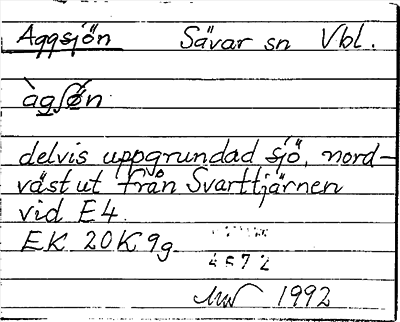 Aggsjön Sävar sn Vbl.
àgʃø̀n
delvis uppgrundad sjö, nord-
väst ut från Svarttjärnen
vid E4.
EK 20K9g
4672
1992